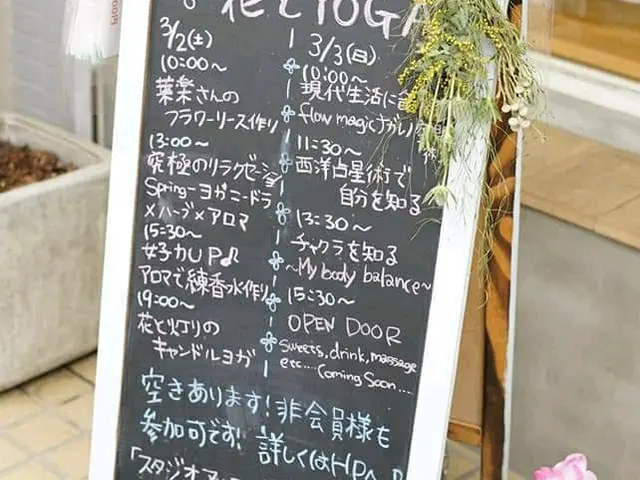 花とYOGA
3/2(土)
10:00〜
葉業さんの
フラワーリース作り
13:00〜
究極のリラクゼーション
Spring-ヨガニードラ
×ハーブ×アロマ
15:30〜
女子力UP♪
アロマで練香水作り
19:00〜
花と灯りの
キャンドルヨガ
3/3(日)
10:00〜
現代生活に
flow magic
11:30〜
西洋占星術で
自分を知る
13:30〜
チャクラを知る
〜My body balance〜
15:30〜
OPEN DOOR
Sweets, drink, massage
etc.... Coming Soon....
空きあります!非会員様も
参加可です! 詳しくはHPへ
「スタジオ